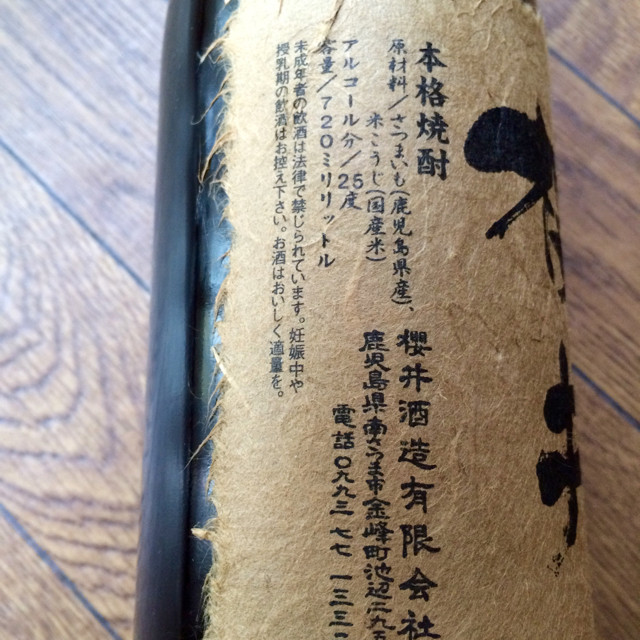 本格焼酎
原材料/さつまいも(鹿児島県産)、
米こうじ(国産米)
アルコール分/25度
容量/720ミリリットル
未成年者の飲酒は法律で禁じられています。妊娠中や
授乳期の飲酒はお控え下さい。お酒はおいしく適量を。
櫻井酒造有限会社
鹿児島県南さつま市金峰町池辺二九五
電話〇九九三-七七-一三三二